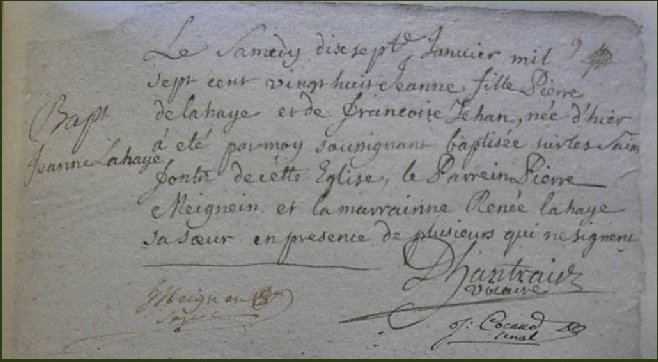 Le Samedy dix sept.e Janvier mil
sept cent vingt huit Jeanne, fille Pierre
de lahaye et de francoise Jehan, née d'hier
Bapt
Jeanne Lahaye
á eté par moy sousignant baptisée sur les Sain
fonts de cétte Eglise, le Parrein Pierre
Meignein et la marrainne Renée lahaye
sa sœur en presence de plusieurs qui ne signent
Vicaire